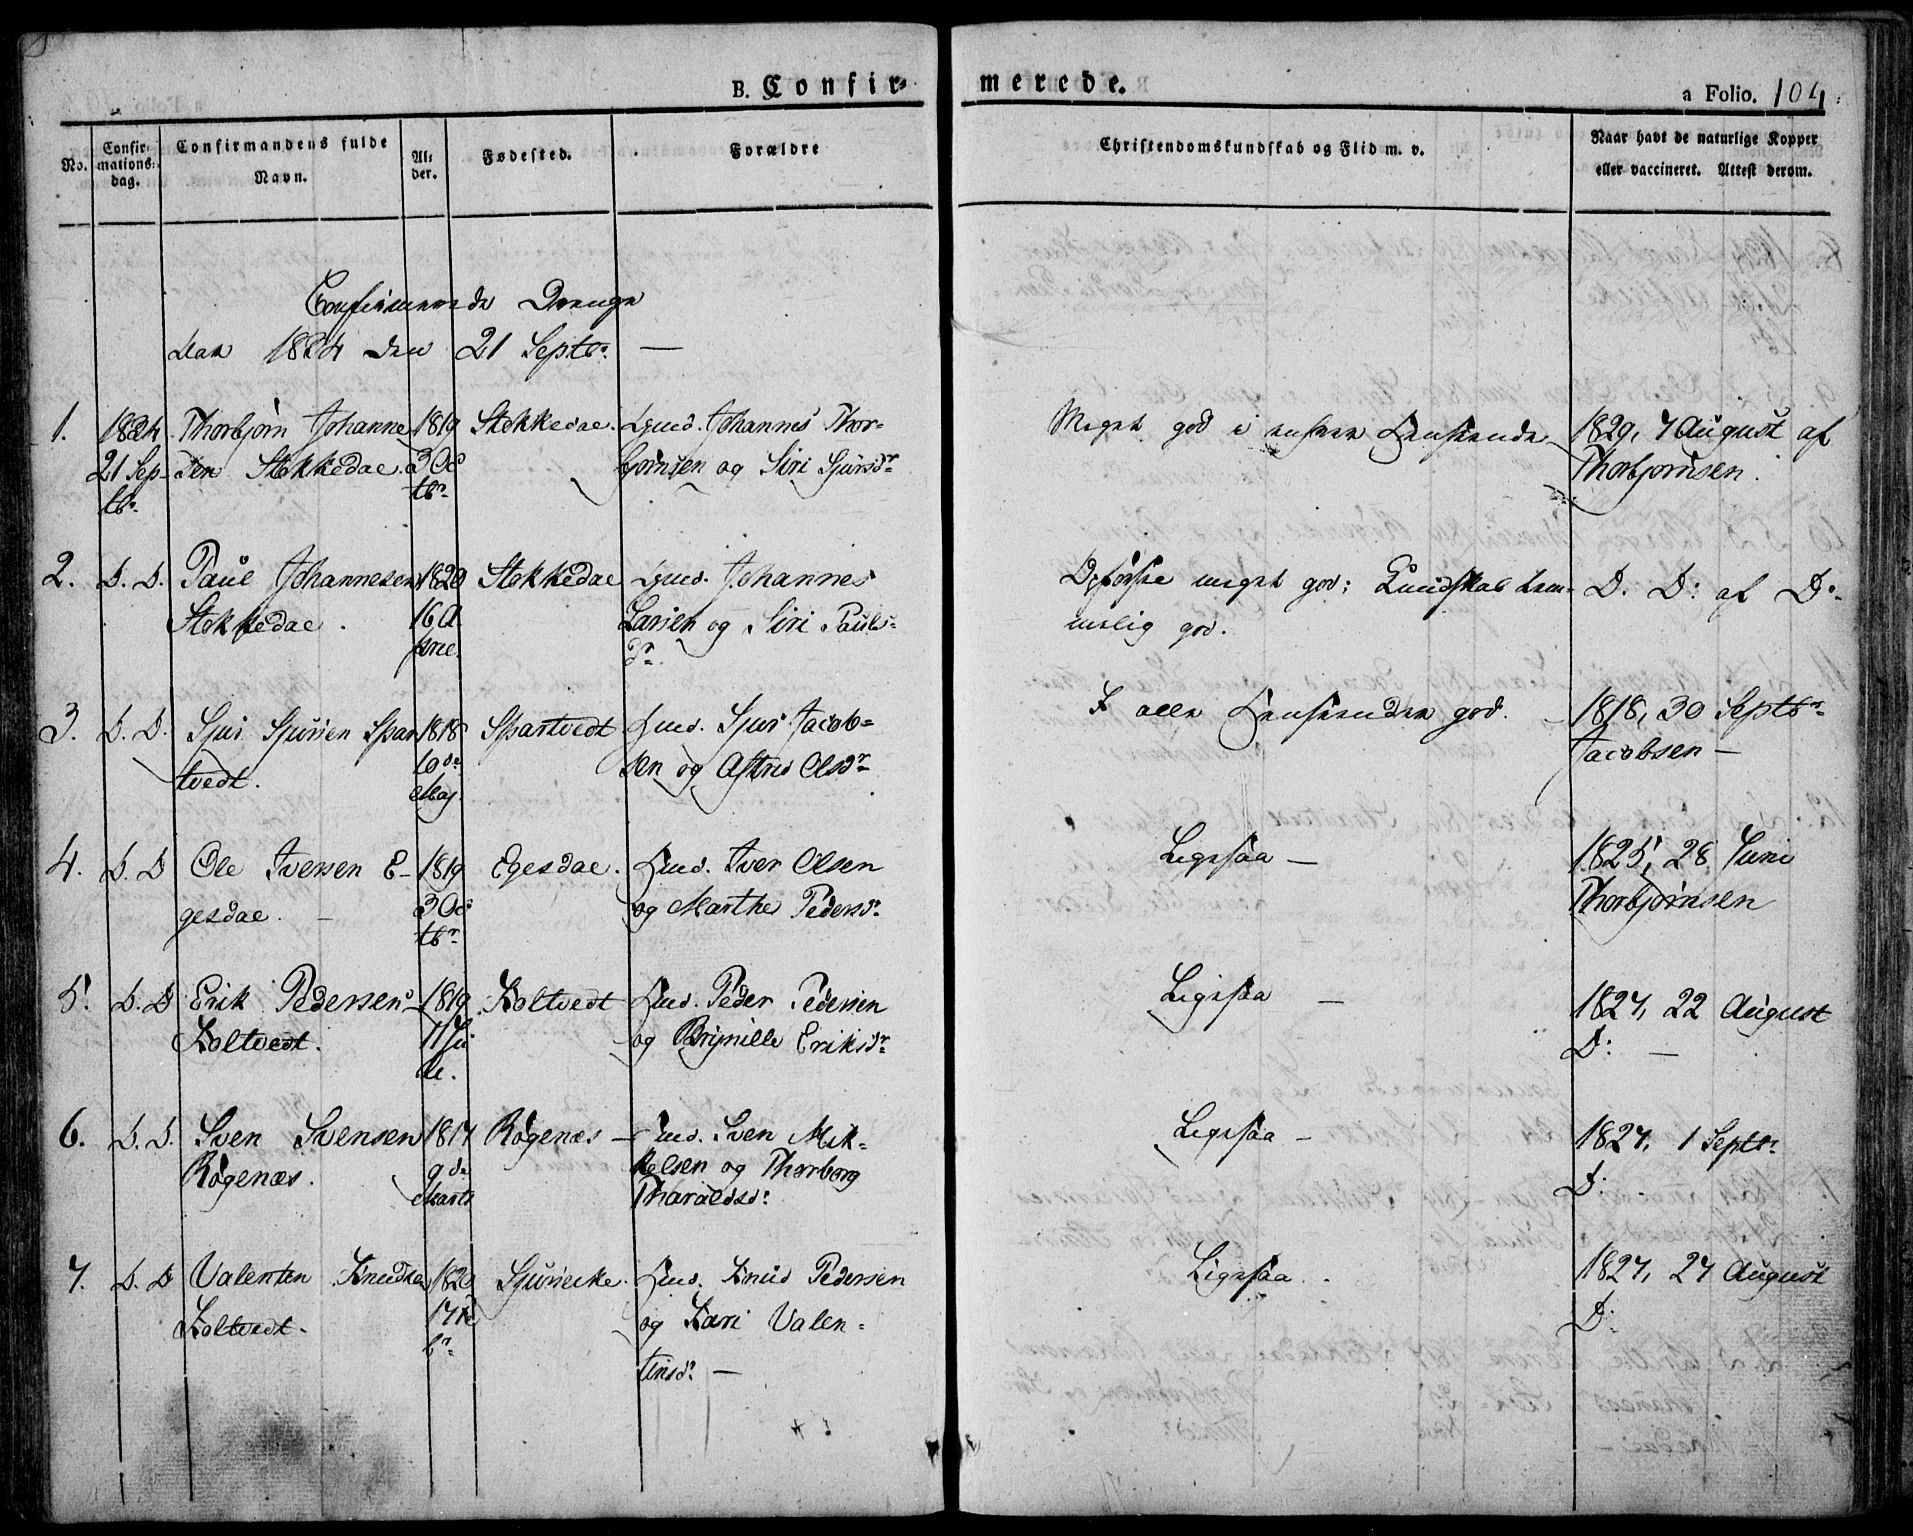 B. Confir=
merede.
a Folio. 104
No.
Confir-
mations-
dag.
Confirmandens fulde
Navn.
Al-
der.
Fødested.
Forældre
Christendomskundskab og Flid m. v.
Naar havt de naturlige Kopper
eller vaccineret. Attest derom.
Confirmerede Drenge
Aar 1834 den 21 Septbr. —
1.
1834
21 Sep-
tbr.
Thorbjørn Johanne
sen Stokkedal.
1819
3 Oc
tbr.
Stokkedal.
Gmd. Johannes Thor-
bjørnsen og Siri Sjursdr.
Meget god i enhver Henseende
1829, 7 August af
Thorbjørnsen.
2.
D. D.
Paul Johannesen
Stokkedal.
1820
16 A
pril.
Stokkedal
Gmd. Johannes
Larsen og Siri Pauls-
dr.
Opførsel meget god; Kundskab tem-
melig god.
D. D: af Do.
3.
D. D.
Sjur Sjursen Spar
tvedt.
1818
10de
Maj.
Spartvedt
Gmd. Sjur Jacob=
sen og Astrid Olsdr.
I alle Henseender god.
1818, 30 Septbr.
Jacobsen —
4.
D. D
Ole Iversen E-
gesdal. —
1819
3 Oc
tbr.
Egesdal.
Gmd. Iver Olsen
og Marthe Pedersdr.
Ligesaa —
1825, 28 Juni
Thorbjørnsen
5.
D. D
Erik Pedersen
Holtvedt.
1819
11 Ju
li.
Holtvedt
Gmd. Peder Pedersen
og Brynille Eriksdr.
Ligesaa —
1827, 22 August
D: —
6.
D. D.
Sven Svensen
Røgenæs.
1817
9de
Marts
Røgenæs —
Gmd. Sven Mik-
kelsen og Thorborg
Tharaldsd:
Ligesaa —
1827, 1 Septbr.
D:
7.
D. D
Valenten Knudsen
Holtvedt.
1820
br.
Gmd. Knud Pedersen
og Kari Valen-
tinsdr. —
Ligesaa.
1827, 27 August
D: